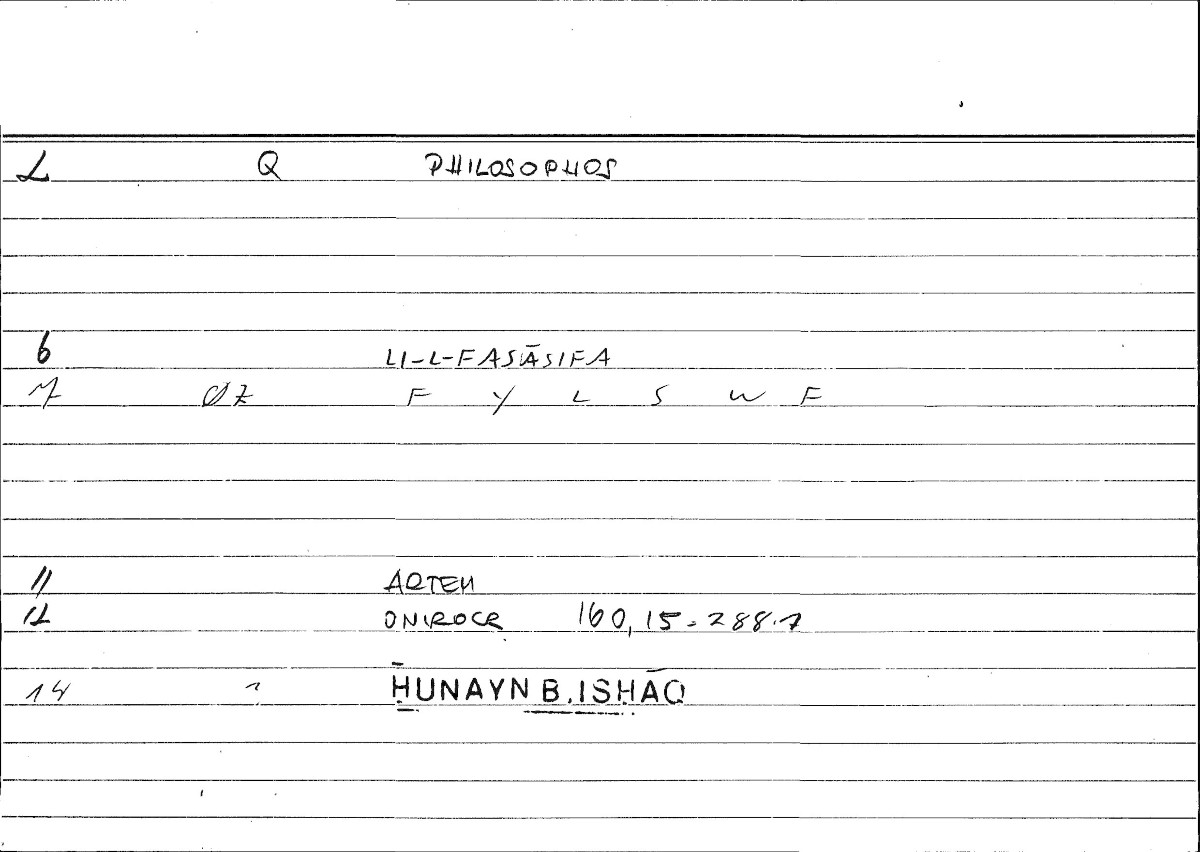 L Q PHILOSOPHOS
6 LI-L-FASĀSIFA
7 ØZ F Y L S W F
11 ARTEM
12 ONIROCR 160,15-288.7
14 ~ ḤUNAYN B. ISHĀQ